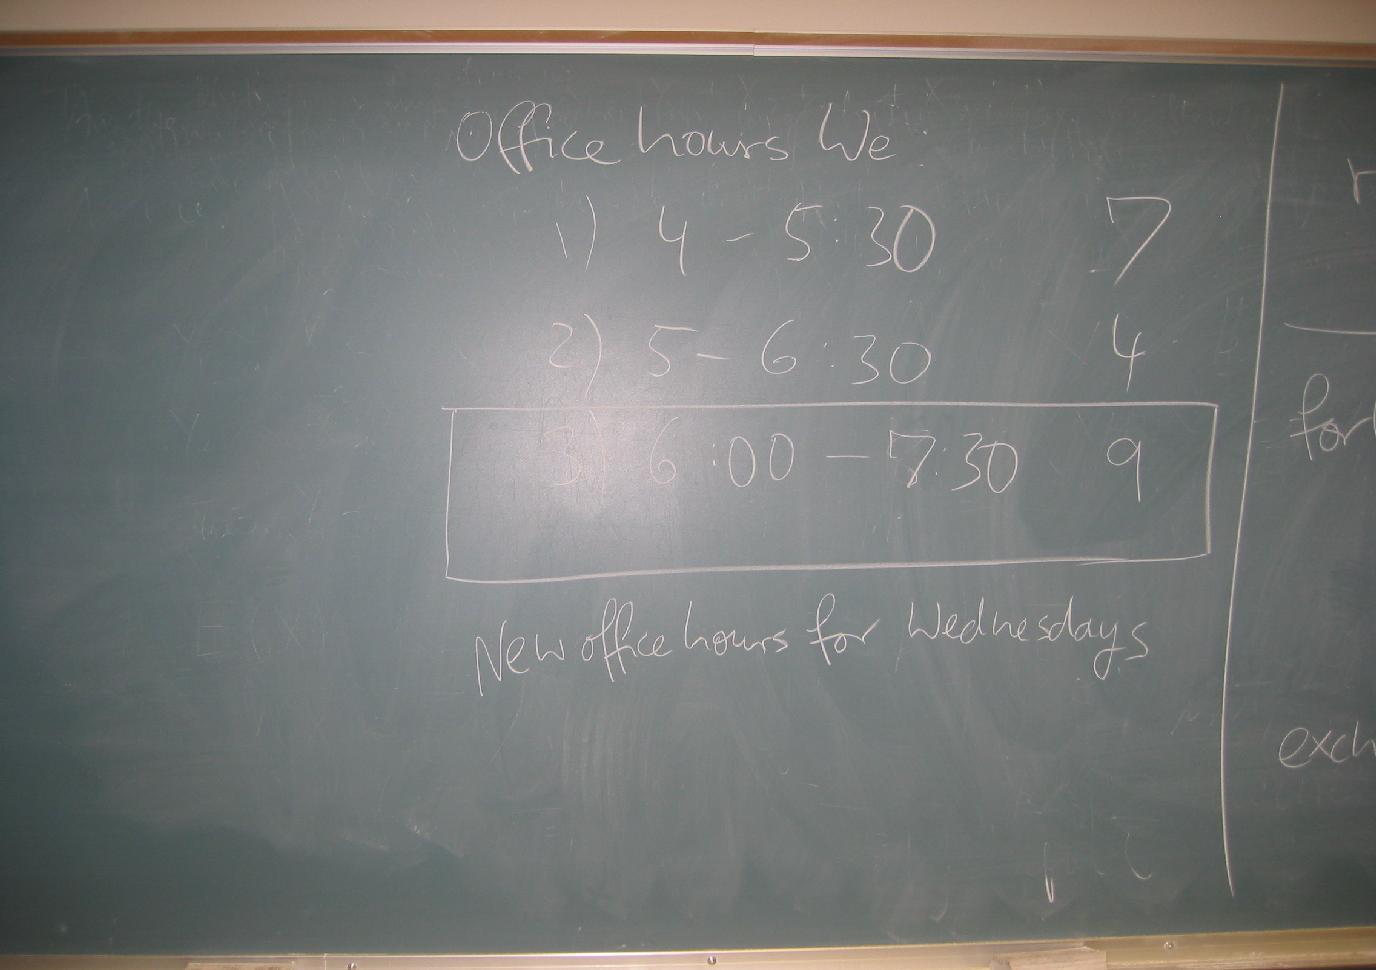 Office hours We:
1) 4 - 5:30 7
2) 5 - 6:30 4
3) 6:00 - 7:30 9
New office hours for Wednesdays
for